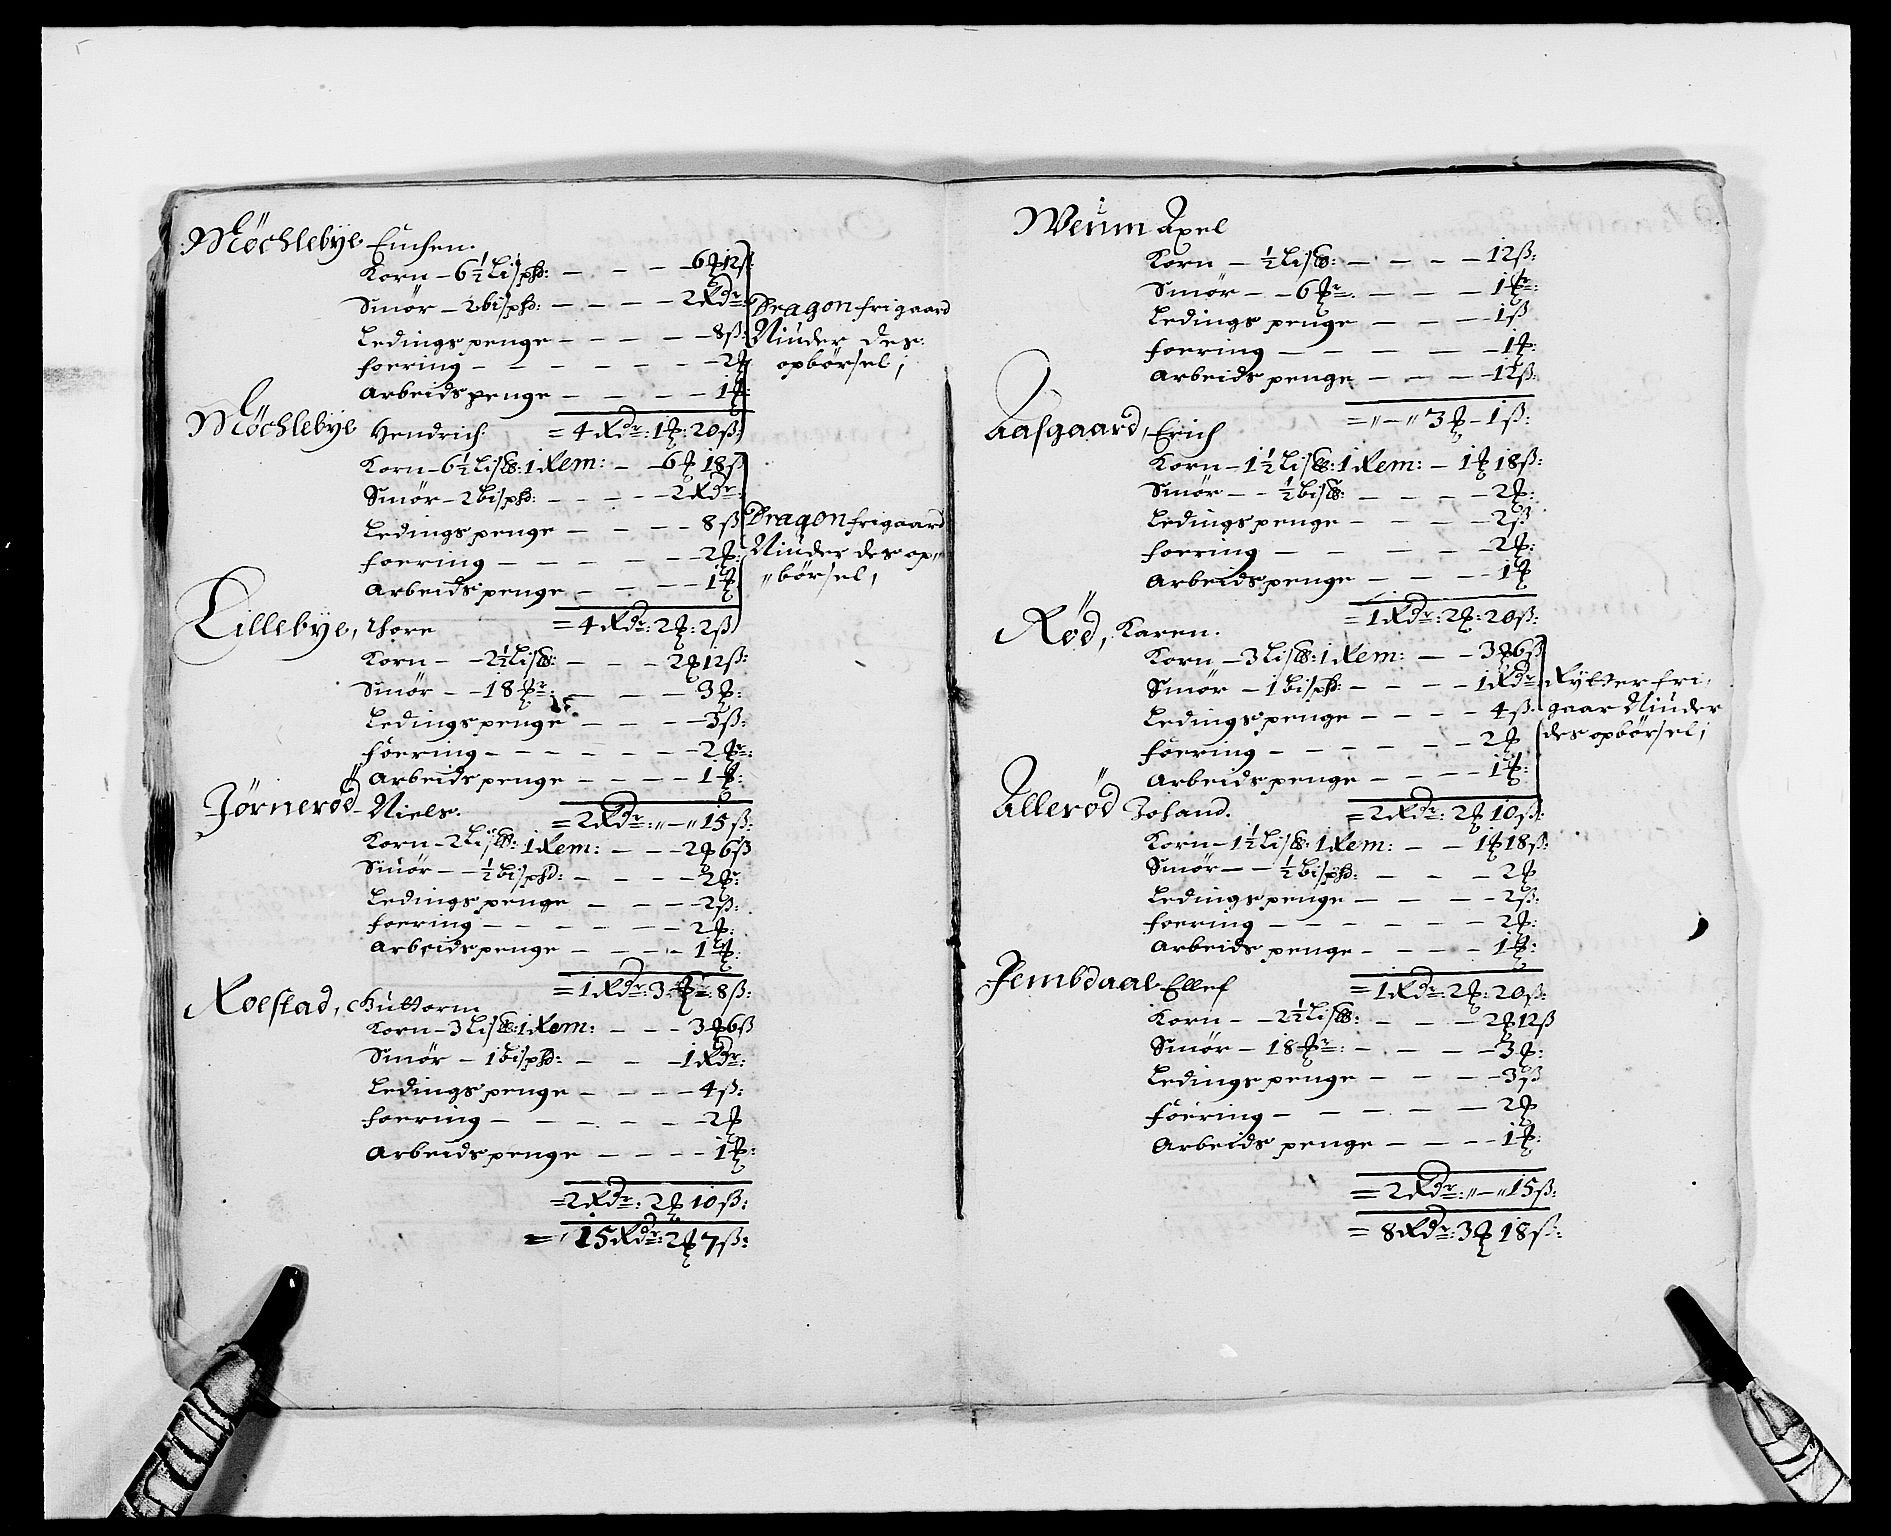 Möchlebye Euchen.
Korn – 6½ Lispd: – – – – 6 ℔ 12 ß:
Smör – 2 bispd: – – – – 2 Rdr:
Ledings penge – – – – – 8 ß:
foering – – – – – – – 2 ℔
Arbeids penge – – – – 1 ℔:
= 4 Rdr: 1 ℔: 20 ß
Dragon frigaard
Niuder des
opbörsel;
Möchlebye Hendrich
Korn – 6½ Lispd: 1 Rem: – – 6 ℔ 18 ß
Smör – 2 bispd: – – – – 2 Rdr:
Ledings penge – – – – 8 ß
foering – – – – – – 2 ℔:
Arbeids penge – – – – 1 ℔
= 4 Rdr: 2 ℔: 2 ß
Dragon frigaard
Niuder des op„
„börsel;
Lillebye, Thore
Korn – – 2½ Lispd: – – – 2 ℔ 12 ß:
Smör – – 18 ℔r: – – – – 3 ℔:
Ledings penge – – – – 3 ß:
foering – – – – – – – 2 ℔r:
Arbeids penge – – – – 1 ℔:
= 2 Rdr: „ – „ 15 ß:
Jörneröd Niels.
Korn – 2 Lispd: 1 Rem: – – – 2 ℔ 6 ß
Smör – – ½ bispd: – – – – 2 ℔r:
Ledings penge – – – – 2 ß:
foering – – – – – – – 2 ℔:
Arbeids penge – – – – 1 ℔:
= 1 Rdr: 3 ℔: 8 ß:
Roestad, Guttorm
Korn – 3 Lispd: 1 Rem: – – – 3 ℔ 6 ß
Smör – 1 bispd: – – – 1 Rdr:
Ledings penge – – – – 4 ß:
foering – – – – – – – 2 ℔
Arbeids penge – – – – 1 ℔:
= 2 Rdr: 2 ℔ 10 ß:
= 15 Rdr: 2 ℔ 7 ß:
Weum Axel
Korn – ½ Lispd: – – – – 12 ß:
Smör – – 6 ℔r: – – – 1 ℔r:
Ledings penge – – – – 1 ß
foering – – – – – 1 ℔:
Arbeids penge – – – – 12 ß:
= „ – „ 3 ℔ – 1 ß:
Aasgaard, Erich
Korn – 1½ Lispd: 1 Rem: – 1 ℔ 18 ß:
Smör – – ½ bispd: – – – – 2 ℔:
Ledings penge – – – – 2 ß
foering – – – – – 2 ℔:
Arbeids penge – – – – 1 ℔
= 1 Rdr: 2 ℔: 20 ß:
Röd, Karen.
Korn – 3 Lispd: 1 Rem: – – 3 ℔ 6 ß
Smör – 1 bispd: – – – – 1 Rdr
Ledings penge – – – – 4 ß:
foering – – – – – – 2 ℔
Arbeids penge – – – – 1 ℔:
= 2 Rdr: 2 ℔ 10 ß:
Rytter fri„
gaar Niuder
des opbörsel;
Alleröd Johand.
Korn – 1½ Lispd: 1 Rem: – – 1 ℔ 18 ß:
Smör – – ½ bispd: – – – 2 ℔
Ledings penge – – – – 2 ß:
foering – – – – – – 2 ℔:
Arbeids penge – – – – 1 ℔:
= 1 Rdr: 2 ℔: 20 ß:
Jembdaal Ellef
Korn – – 2½ Lispd: – – – – 2 ℔ 12 ß
Smör – 18 ℔r: – – – – 3 ℔:
Ledings penge – – – – 3 ß
foering – – – – – – 2 ℔
Arbeids penge – – – – 1 ℔:
= 2 Rdr: „ – „ 15 ß:
= 8 Rdr: 3 ℔ 18 ß: